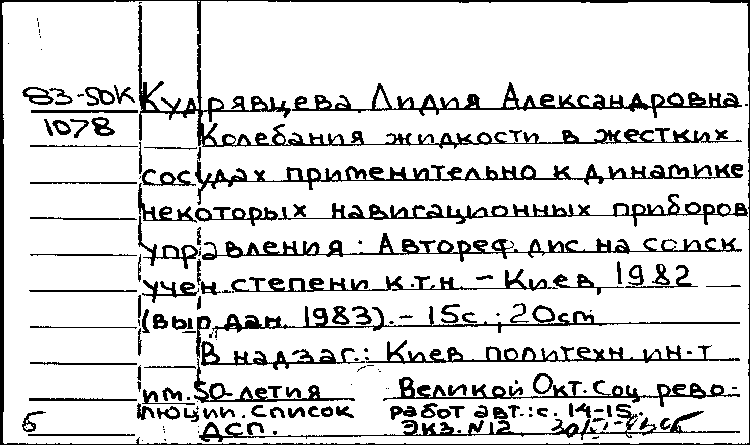 83-50К Кудрявцева Лидия Александровна.
1078 Колебания жидкости в жестких
сосудах применительно к динамике
некоторых навигационных приборов
управления: Автореф. дис. на соиск
учен. степени к.т.н. - Киев, 1982
(вып. дан. 1983). - 15с.; 20cm
В надзаг.: Киев политехн. ин-т
им. 50-летия Великой Окт. Соц рево-
люции. Список работ авт.: с. 14-15.
Б ДСП. Экз. N12